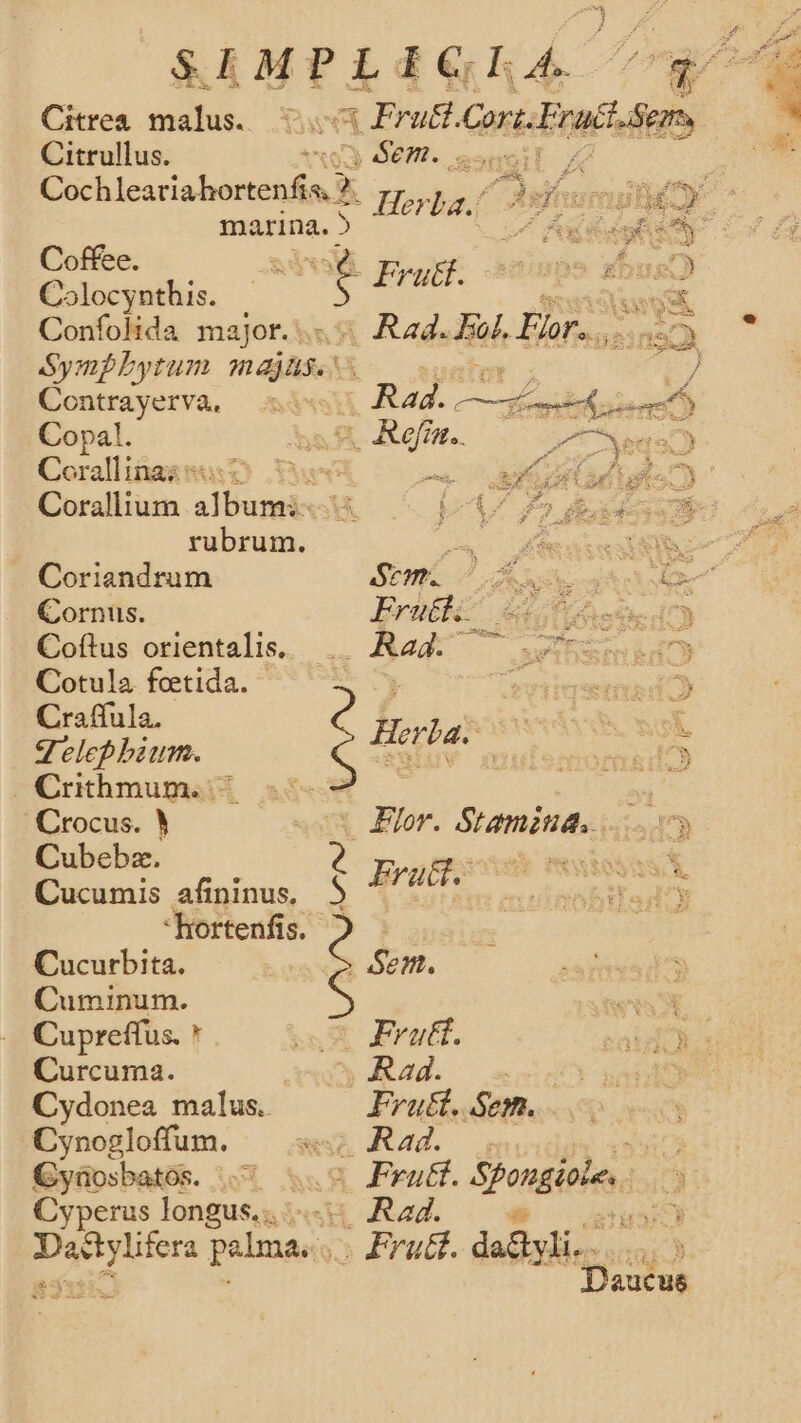 SIMPLICIA.
Citrea malus. Fruct. Cort. Fruct. Sem.
Citrullus. Sem.
Cochlearia hortenſis. } Herba.
marina. }
Coffee. } Fruct.
Colocynthis. }
Conſolida major. Rad. Fol. Flor.
Symphytum majus.
Contrayerva. Rad.
Copal. Reſin.
Corallina
Corallium album
rubrum.
Coriandrum Sem.
Cornus. Fruct.
Coſtus orientalis. Rad.
Cotula fœtida. }
Craſſula. } Herba.
Telephium. }
Crithmum. }
Crocus. Flor. Stamina.
Cubebæ. } Fruct.
Cucumis aſininus. }
hortenſis. }
Cucurbita. } Sem.
Cuminum. }
Cupreſſus. Fruct.
Curcuma. Rad.
Cydonea malus. Fruct. Sem.
Cynogloſſum. Rad.
Cynosbatos. Fruct. Spongiole.
Cyperus longus. Rad.
Dactylifera palma. Fruct. dactyli.
Daucus